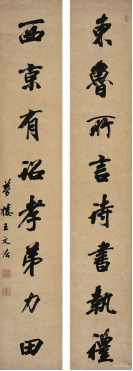 東魯所言詩書執禮
西京有詔孝弟力田
夢樓王文治